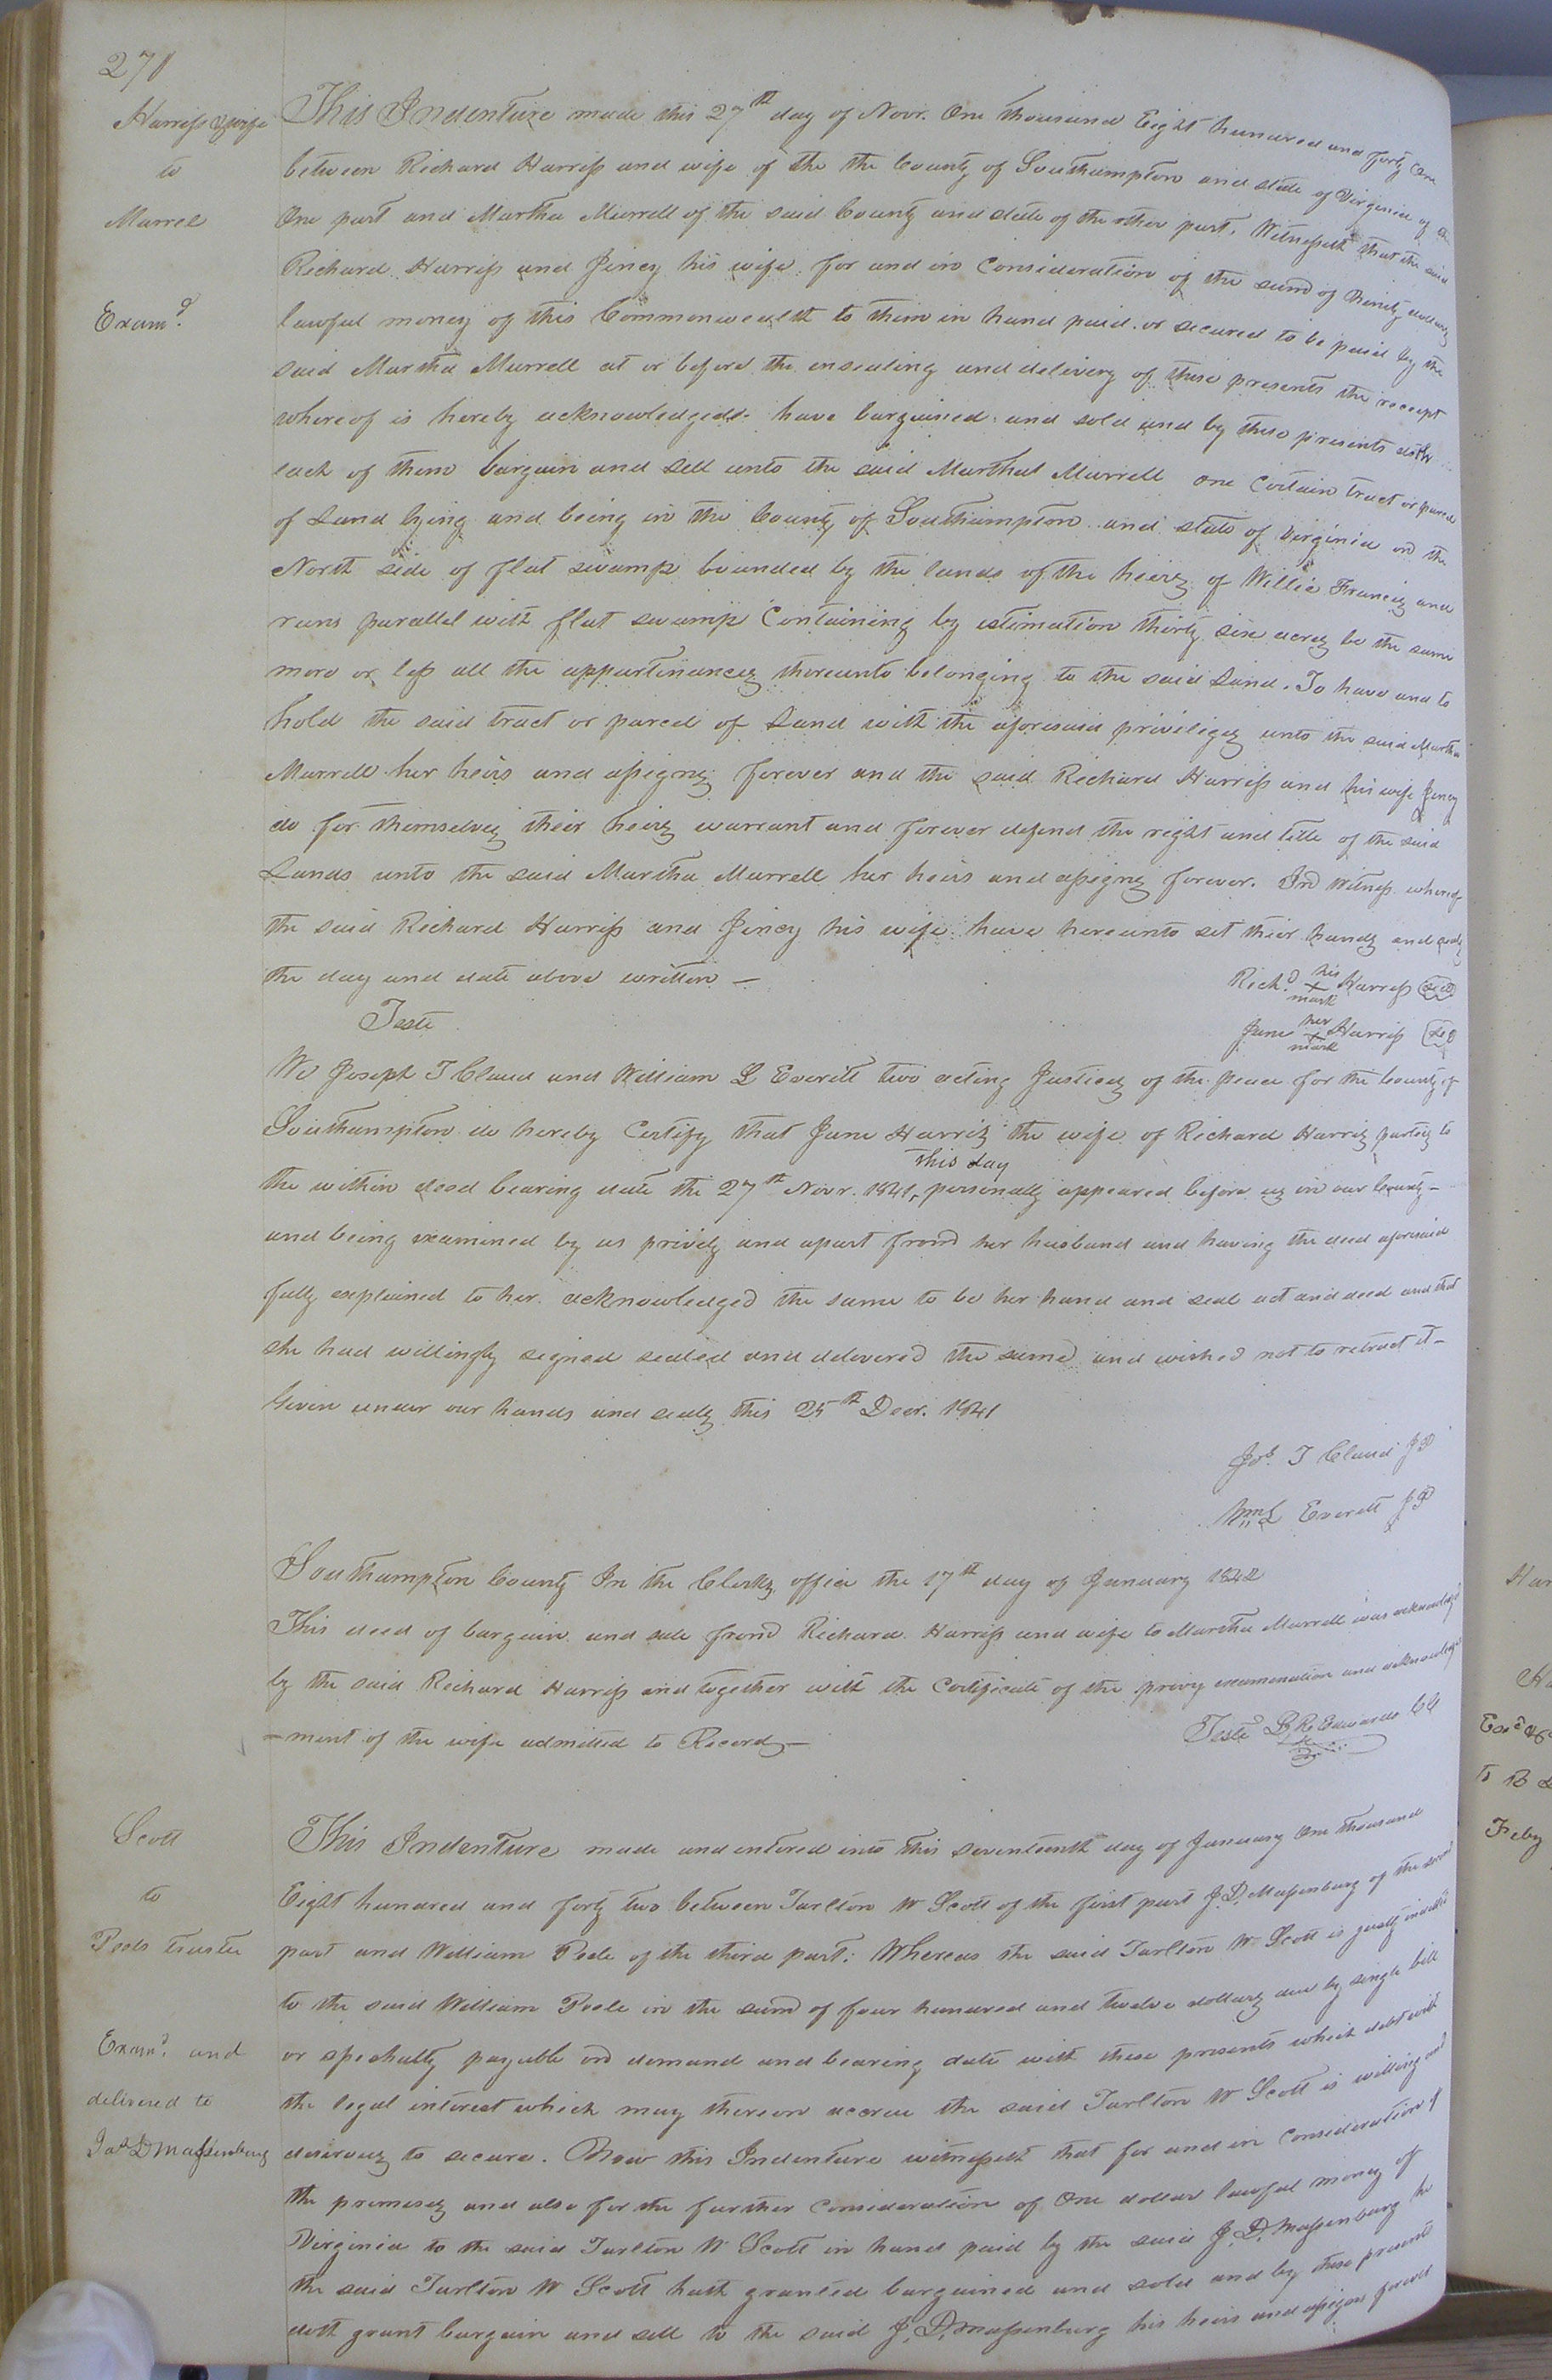 271
Harriss & wife
to
Murrel
Exam.d
This Indenture made this 27th day of Novr. One thousand Eight hundred and forty One
between Richard Harriss and wife of the the County of Southampton and state of Virginia of the
One part and Martha Murrell of the said County and state of the other part. Witnesseth that the said
Richard Harriss and Jincy his wife for and in Consideration of the sum of thirty dollars
lawful money of this Commonwealth to them in hand paid or secured to be paid by the
said Martha Murrell at or before the ensealing and delivery of these presents the receipt
whereof is hereby acknowledged. have bargained and sold and by these presents doth
each of them bargain and sell unto the said Marthal Murrell one Certain tract or parcel
of Land lying and being in the County of Southampton and state of Virginia on the
North side of flat swamp bounded by the lands of the heirs of Willie Francis and
runs parallel with flat swamp Containing by estimation thirty six acres be the same
more or less all the appurtinances thereunto belonging to the said Land. To have and to
hold the said tract or parcel of Land with the aforesaid priviliges unto the said Martha
Murrell her heirs and assigns forever and the said Richard Harriss and his wife Jincy
do for themselves their heirs warrant and forever defend the right and title of the said
Lands unto the said Martha Murrell her heirs and assigns forever. In Witness whereof
the said Richard Harriss and Jincy his wife have hereunto set their hands and seals
the day and date above written —
Rich.d his X mark Harriss seal
Teste
Jane her X mark Harriss seal
We Joseph T Claud and William L Everitt two acting Justices of the peace for the County of
Southampton do hereby Certify that Jane Harris the wife of Richard Harris parties to
this day
the within deed bearing date the 27th Novr. 1841, personally appeared before us in our County –
and being examined by us privily and apart from her husband and having the deed aforesaid
fully explained to her acknowledged the same to be her hand and seal act and deed and that
she had willingly signed sealed and delivered the same and wished not to retract it –
Given under our hands and seals this 25th Decr. 1841
Jos. T Claud JP
Wm L Everett JP
Southampton County In the Clerks office the 17th day of January 1842
This deed of bargain and sale from Richard Harriss and wife to Martha Murrell was acknowledged
by the said Richard Harriss and together with the Certificate of the privy examination and acknowledge
– ment of the wife admitted to Record –
Teste L R Edwards Clk
Scott
to
Peels trustee
Exam.d and
delivered to
Jas D Massenburg
This Indenture made and entered into this seventeenth day of January One thousand
Eight hundred and forty two between Turlton W Scott of the first part J. D. Massenburg of the second
part and William Peele of the third part: Whereas the said Turlton W Scott is justly indebted
to the said William Peele in the sum of four hundred and twelve dollars due by single bill
or specholty payable on demand and bearing date with these presents which debt with
the legal interest which may thereon accrue the said Turlton W Scott is willing and
desirous to secure. Now this Indenture witnesseth that for and in Consideration of
the premises and also for the further Consideration of One dollar lawful money of
Virginia to the said Turlton W Scott in hand paid by the said J. D. Massenburg he
the said Turlton W Scott hath granted bargained and sold and by these presents
doth grant bargain and sell to the said J. D. Massenburg his heirs and assigns forever
Har
to B
Feby